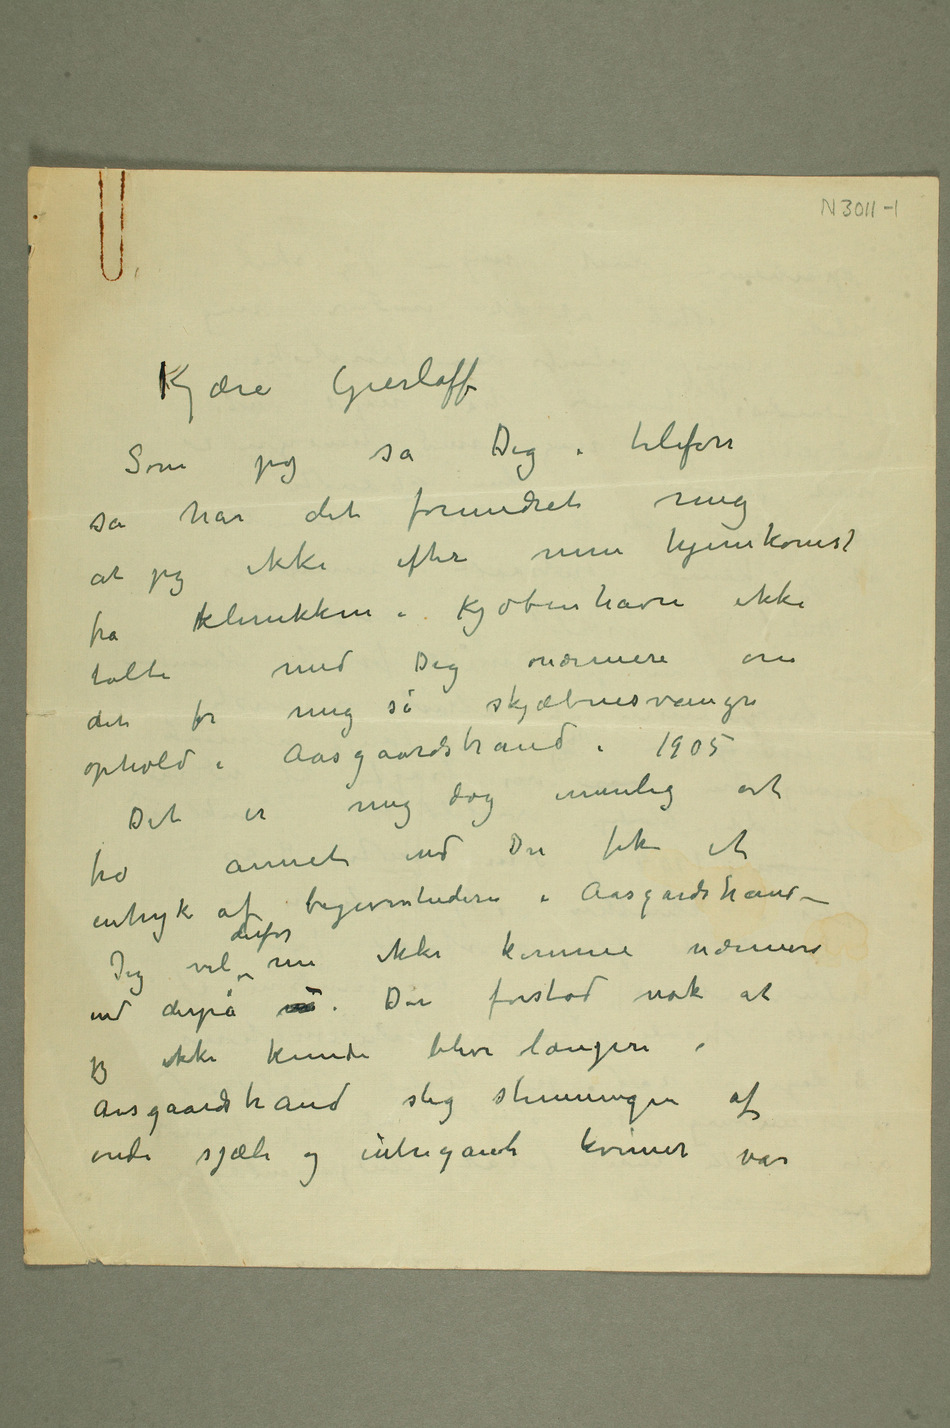 N 3011-1
Kjære Gierløff
Som jeg sa Dig i telefon
sa har det forundret mig
at jeg ikke efter min hjemkomst
fra klinikken i Kjøbenhavn ikke
talte med Dig nærmere om
det for mig så skjæbnesvangre
ophold i Aasgaardstrand i 1905
Det er mig dog umulig at
tro annet end Du fik et
intryk af begivenhederne i Aasgardstrand –
derfor
Jeg vil nu ikke komme nærmere
ind derpå. Du forstod nok at
jeg ikke kunde blive længere i
Aasgaardstrand slig stemningen af
onde sjæle og intrigante kvinner var